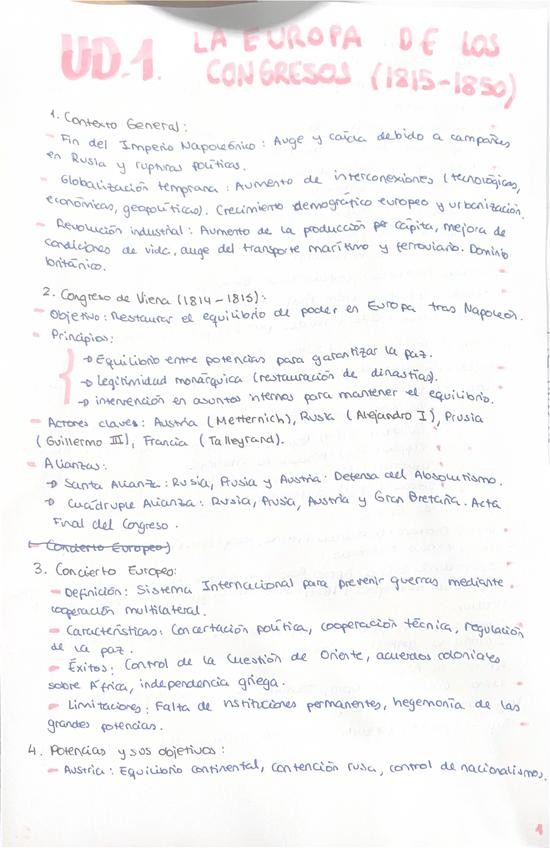 UD.1. LA EUROPA DE LOS
CONGRESOS (1815-1850)
1. Contexto General:
- Fin del Imperio Napoleónico: Auge y caída debido a campañas
en Rusia y rupturas políticas.
- Globalización temprana: Aumento de interconexiones (tecnológicas,
económicas, geopolíticas). Crecimiento demográfico europeo y urbanización.
- Revolución industrial: Aumento de la producción per cápita, mejora de
condiciones de vida, auge del transporte marítimo y ferroviario. Dominio
británico.
2. Congreso de Viena (1814-1815):
- Objetivo: Restaurar el equilibrio de poder en Europa tras Napoleón.
- Principios:
→ Equilibrio entre potencias para garantizar la paz.
→ Legitimidad monárquica (restauración de dinastías).
→ intervención en asuntos internos para mantener el equilibrio.
- Actores claves: Austria (Metternich), Rusia (Alejandro I), Prusia
(Guillermo III), Francia (Talleyrand).
- Alianzas:
→ Santa Alianza: Rusia, Prusia y Austria. Defensa del Absolutismo.
→ Cuádruple Alianza: Rusia, Prusia, Austria y Gran Bretaña. Acta
Final del Congreso.
(Concierto Europeo)
3. Concierto Europeo:
- Definición: Sistema Internacional para prevenir guerras mediante
cooperación multilateral.
- Características: Concertación política, cooperación técnica, regulación
de la paz.
- Éxitos: Control de la Cuestión de Oriente, acuerdos coloniales
sobre África, independencia griega.
- Limitaciones: Falta de instituciones permanentes, hegemonía de las
grandes potencias.
4. Potencias y sus objetivos:
- Austria: Equilibrio continental, contención rusa, control de nacionalismos.
1